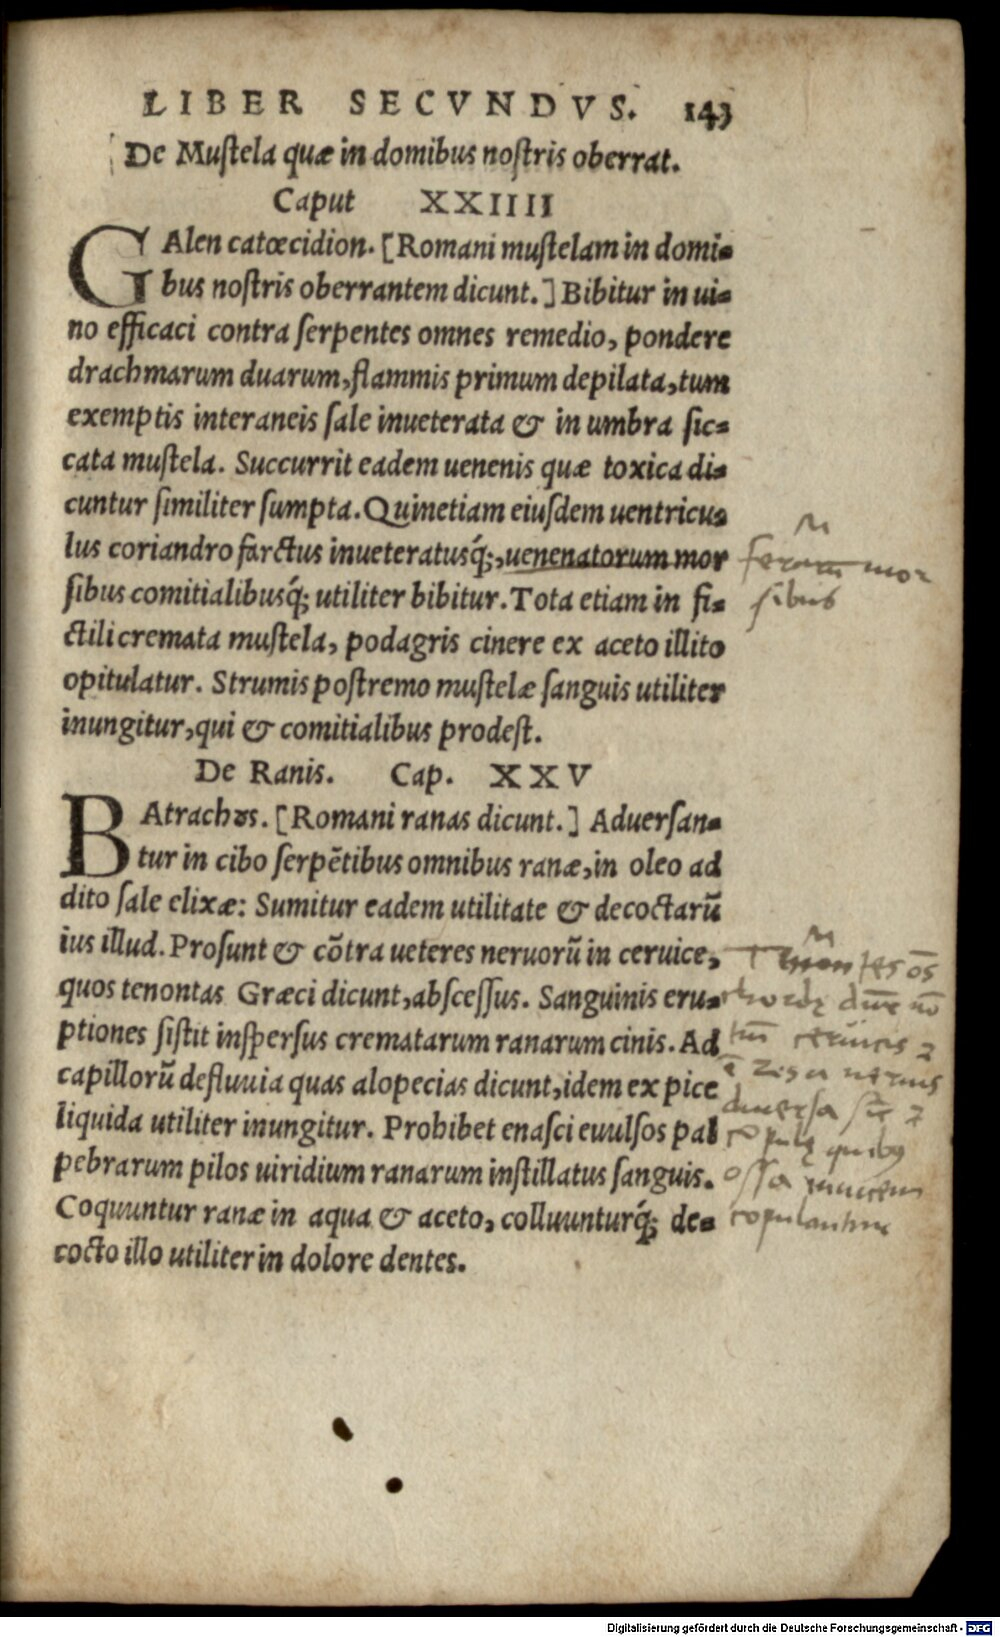 LIBER SECVNDVS. 143
De Mustela quæ in domibus nostris oberrat.
Caput XXIIII
GAlen catœcidion. [Romani mustelam in domi=
bus nostris oberrantem dicunt.] Bibitur in ui=
no efficaci contra serpentes omnes remedio, pondere
drachmarum duarum, flammis primum depilata, tum
exemptis interaneis sale inueterata & in umbra sic=
cata mustela. Succurrit eadem uenenis quæ toxica di=
cuntur similiter sumpta. Quinetiam eiusdem uentricu=
lus coriandro farctus inueteratusq́;, uenenatorum mor
sibus comitialibusq́; utiliter bibitur. Tota etiam in fi=
ctili cremata mustela, podagris cinere ex aceto illito
opitulatur. Strumis postremo mustelæ sanguis utiliter
inungitur, qui & comitialibus prodest.
De Ranis. Cap. XXV
BAtrachȣs. [Romani ranas dicunt.] Aduersan=
tur in cibo serpẽtibus omnibus ranæ, in oleo ad
dito sale elixæ: Sumitur eadem utilitate & decoctarũ
ius illud. Prosunt & cõtra ueteres neruorũ in ceruice,
quos tenontas Græci dicunt, abscessus. Sanguinis eru=
ptiones sistit inspersus crematarum ranarum cinis. Ad
capillorũ defluuia quas alopecias dicunt, idem ex pice
liquida utiliter inungitur. Prohibet enasci euulsos pal
pebrarum pilos uiridium ranarum instillatus sanguis.
Coquuntur ranæ in aqua & aceto, colluunturq́; de=
cocto illo utiliter in dolore dentes.
mor
sibus
diuersa
quibus
ossa inuicem
copulantur
Digitalisierung gefördert durch die Deutsche Forschungsgemeinschaft - DFG